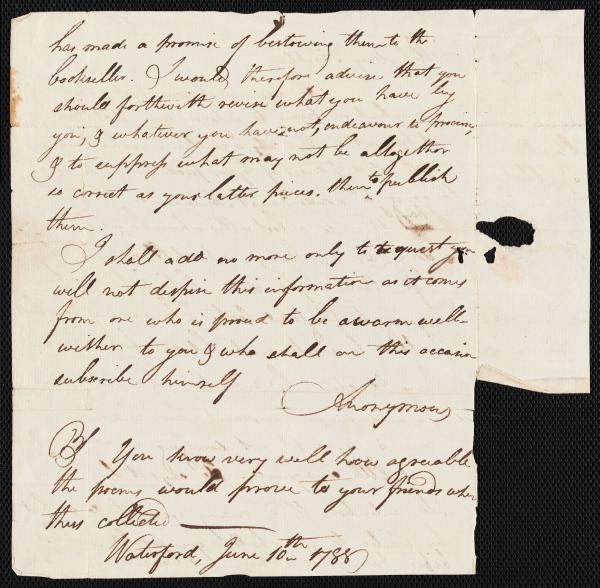 has made a promise of bestowing them to the
bookseller. I would therefore advise that you
should forthwith revise what you have by
you, & whatever you have not, endeavour to procure,
& to suppress what may not be altogether
so correct as your latter pieces. then to publish
them.
I shall add no more only to request you
will not despise this information as it comes
from one who is proud to be a warm well-
wisher to you & who shall on this occasion
subscribe himself
Anonymous
You know very well how agreeable
the poems would prove to your friends when
thus collected
Waterford, June 10th 1788